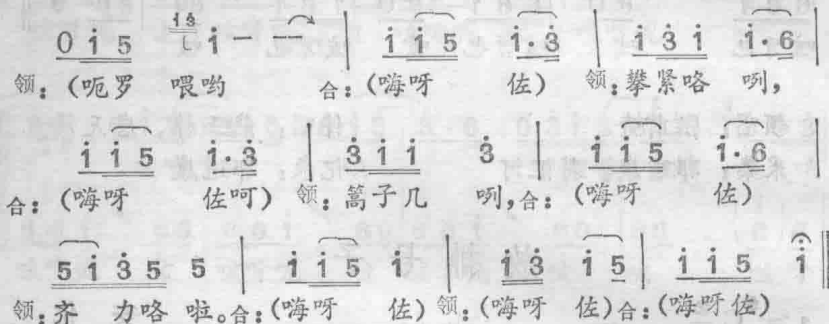 0 i 5 i — — | i i 5 i·3 | i 3 i i·6 |
领：(呃罗 喂哟 合：(嗨呀 佐) 领：攀紧咯 咧，
i i 5 i·3 | 3 i i 3 | i i 5 i·6 |
合：(嗨呀 佐呵) 领：篙子几 咧，合：(嗨呀 佐)
5 i 3 5 5 | i i 5 i | i 3 i 5 | i i 5 i
领：齐 力咯 啦。合：(嗨呀 佐) 领：(嗨呀 佐) 合：(嗨呀佐)